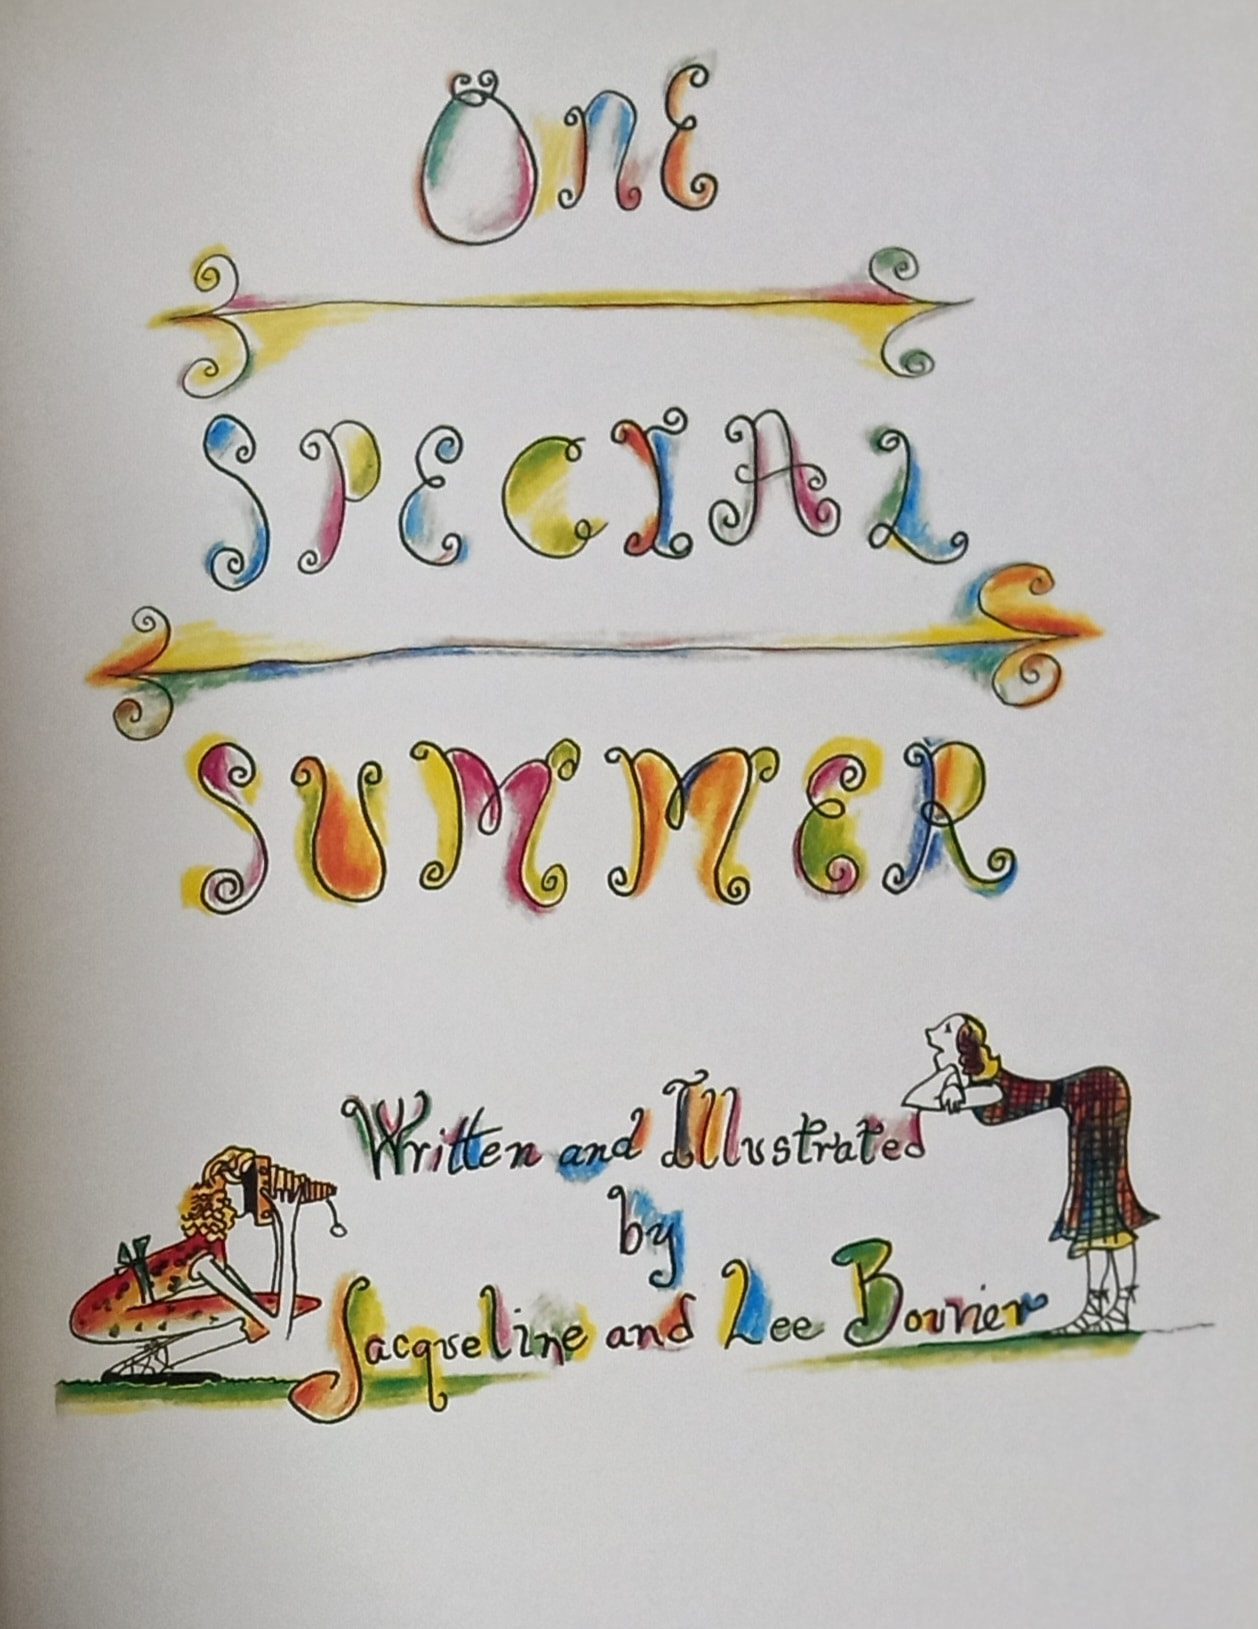 ONE
SPECIAL
SUMMER
Written and Illustrated
by
Jacqueline and Lee Bouvier